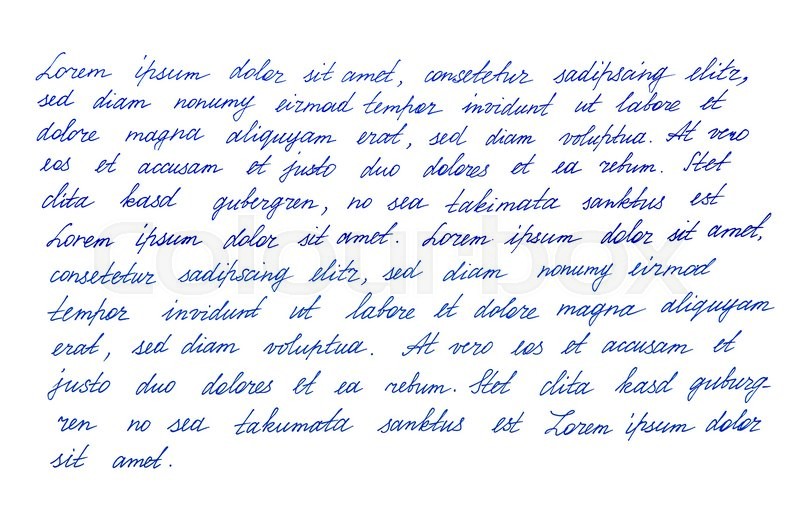 Lorem ipsum dolor sit amet, consetetur sadipscing elitr,
sed diam nonumy eirmod tempor invidunt ut labore et
dolore magna aliquyam erat, sed diam voluptua. At vero
eos et accusam et justo duo dolores et ea rebum. Stet
clita kasd gubergren, no sea takimata sanktus est
Lorem ipsum dolor sit amet. Lorem ipsum dolor sit amet,
consetetur sadipscing elitr, sed diam nonumy eirmod
tempor invidunt ut labore et dolore magna aliquyam
erat, sed diam voluptua. At vero eos et accusam et
justo duo dolores et ea rebum. Stet clita kasd guburg
ren no sea takumata sanktus est Lorem ipsum dolor
sit amet.
colourbox